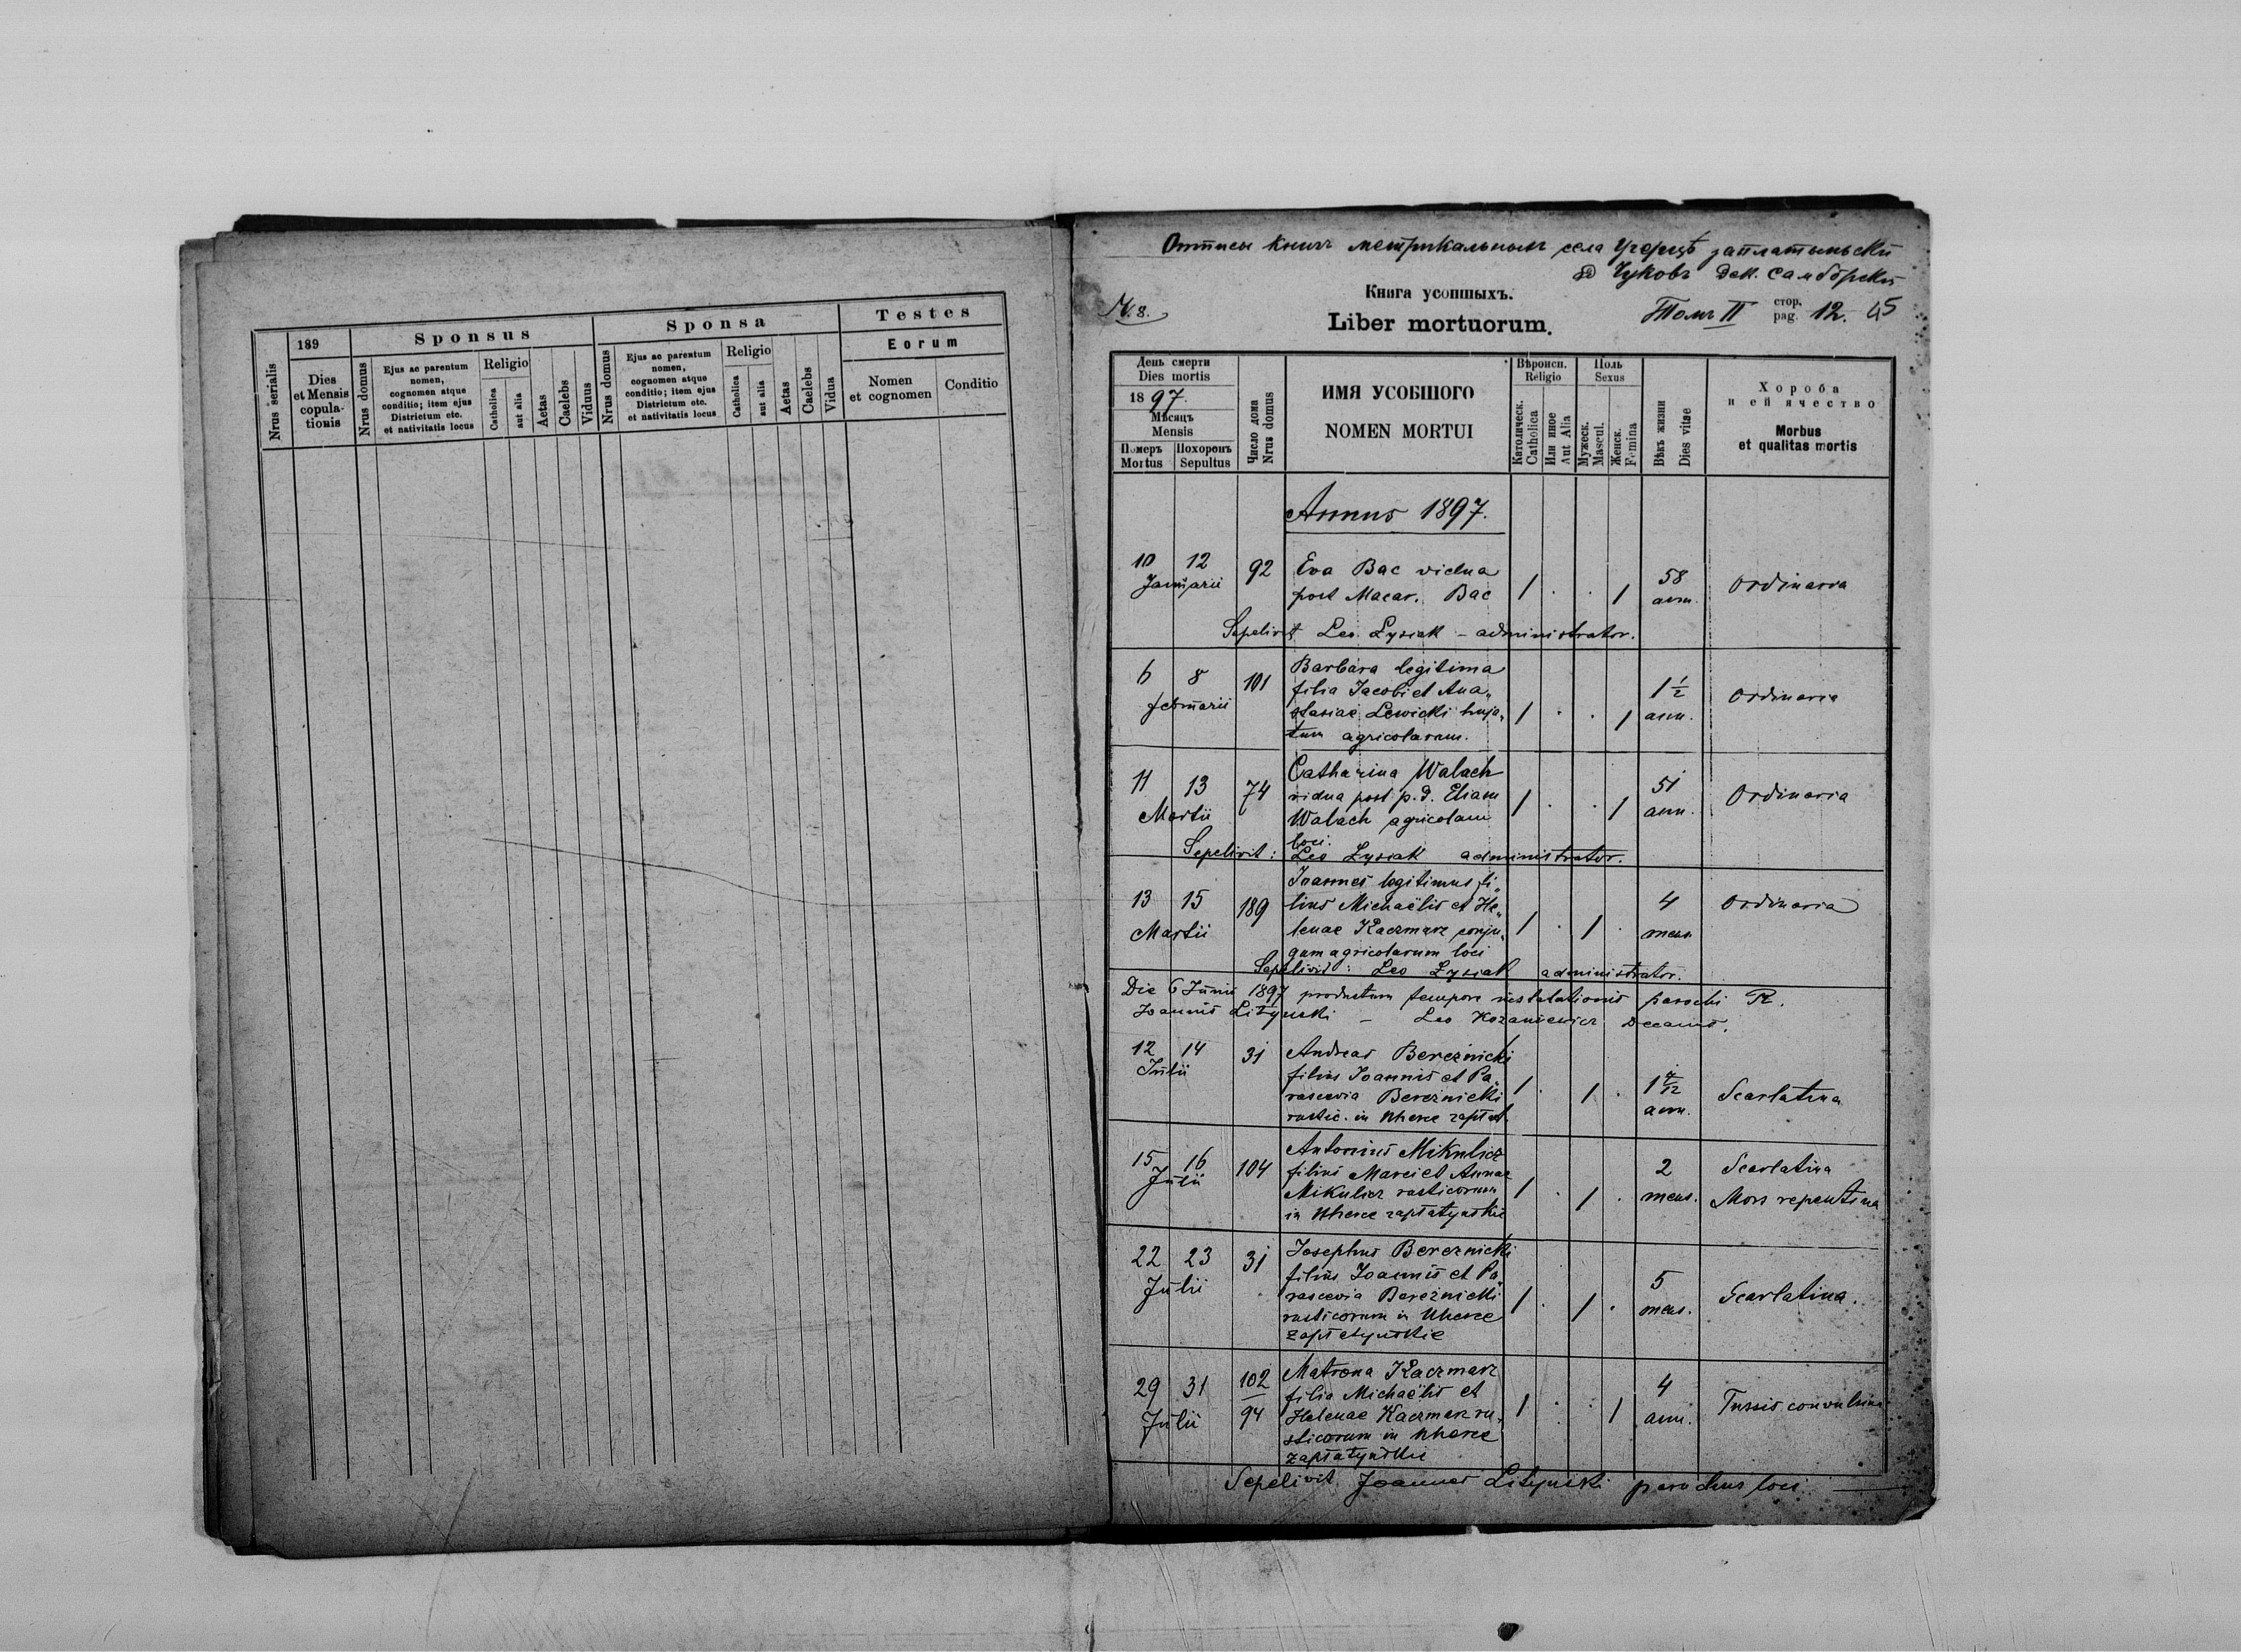 189
Sponsus
Sponsa
Testes
Eorum
Nrus serialis
Dies
et Mensis
copula-
tionis
Nrus domus
Ejus ac parentum
nomen,
cognomen atque
conditio; item ejus
Districtum etc.
et nativitatis locus
Religio
Catholica
aut alia
Aetas
Caelebs
Viduus
Nrus domus
Ejus ac parentum
nomen,
cognomen atque
conditio; item ejus
Districtum etc.
et nativitatis locus
Religio
Catholica
aut alia
Aetas
Caelebs
Vidua
Nomen
et cognomen
Conditio
Оттисы книгъ метрикальныхъ села Угерцѣ заплатыньскіи
Чуковъ дек. Самбôрскіи
Книга усопшыхъ.
N. 8.
Liber mortuorum.
Томъ II стор. pag. 12. 45
День смерти
Dies mortis
1897.
Мѣсяцъ
Mensis
Померъ
Mortus
Похоронъ
Sepultus
Число дома
Nrus domus
ИМЯ УСОБШОГО
NOMEN MORTUI
Вѣроисп.
Religio
Католическ.
Catholica
Или иное
Aut Alia
Поль
Sexus
Мужеск.
Mascul.
Женск.
Femina
Вѣкъ жизни
Dies vitae
Хороба
и ей ячество
Morbus
et qualitas mortis
Annus 1897.
10 12 92 Eva Bac vidua 58 Ordinaria
Januarii post Macar. Bac 1 . . 1 ann.
Sepelivit Leo Łysiak – administrator.
6 8 101 Barbara legitima 1 1/2 Ordinaria
februarii filia Jacobi et Ana„
stasiae Lewicki huja„ 1 . . 1 ann.
tum agricolarum.
11 13 74 Catharina Walach 51 Ordinaria
Martii vidua post p. d. Eliam 1 . . 1 ann.
Walach agricolam
loci.
Sepelivit: Leo Łysiak administrator.
13 15 189 Joannes legitimus fi„ 4 Ordinaria
Martii lius Michaëlis et He„
lenae Kaczmarz conju„ 1 . 1 . mens.
gum agricolarum loci
Sepelivit: Leo Łysiak administrator.
Die 6 Junii 1897 productum tempore installationis parochi
Joannis Lityński – Leo Kozaniewicz Decanus.
12 14 31 Andreas Bereźnicki 1 4/12 Scarlatina
Julii filius Joannis et Pa„
rascevia Bereźnicki 1 . 1 . ann.
rustic. in Uherce zapłat.
15 16 104 Antonius Mikulicz 2 Scarlatina
Julii filius Marci et Annae
Mikulicz rusticorum 1 . 1 . mens. Mors repentina
in Uherce zapłatyńskie
22 23 31 Josephus Bereznicki 5 Scarlatina.
Julii filius Joannis et Pa„
rascevia Bereźnicki 1 . 1 . mens.
rusticorum in Uherce
zapłatyńskie
29 31 102/94 Matrona Kaczmarz 4 Tussis convulsiva
Julii filia Michaëlis et
Helenae Kaczmarz ru„ 1 . . 1 ann.
sticorum in Uherce
zapłatyńskie
Sepelivit Joannes Lityński parochus loci.